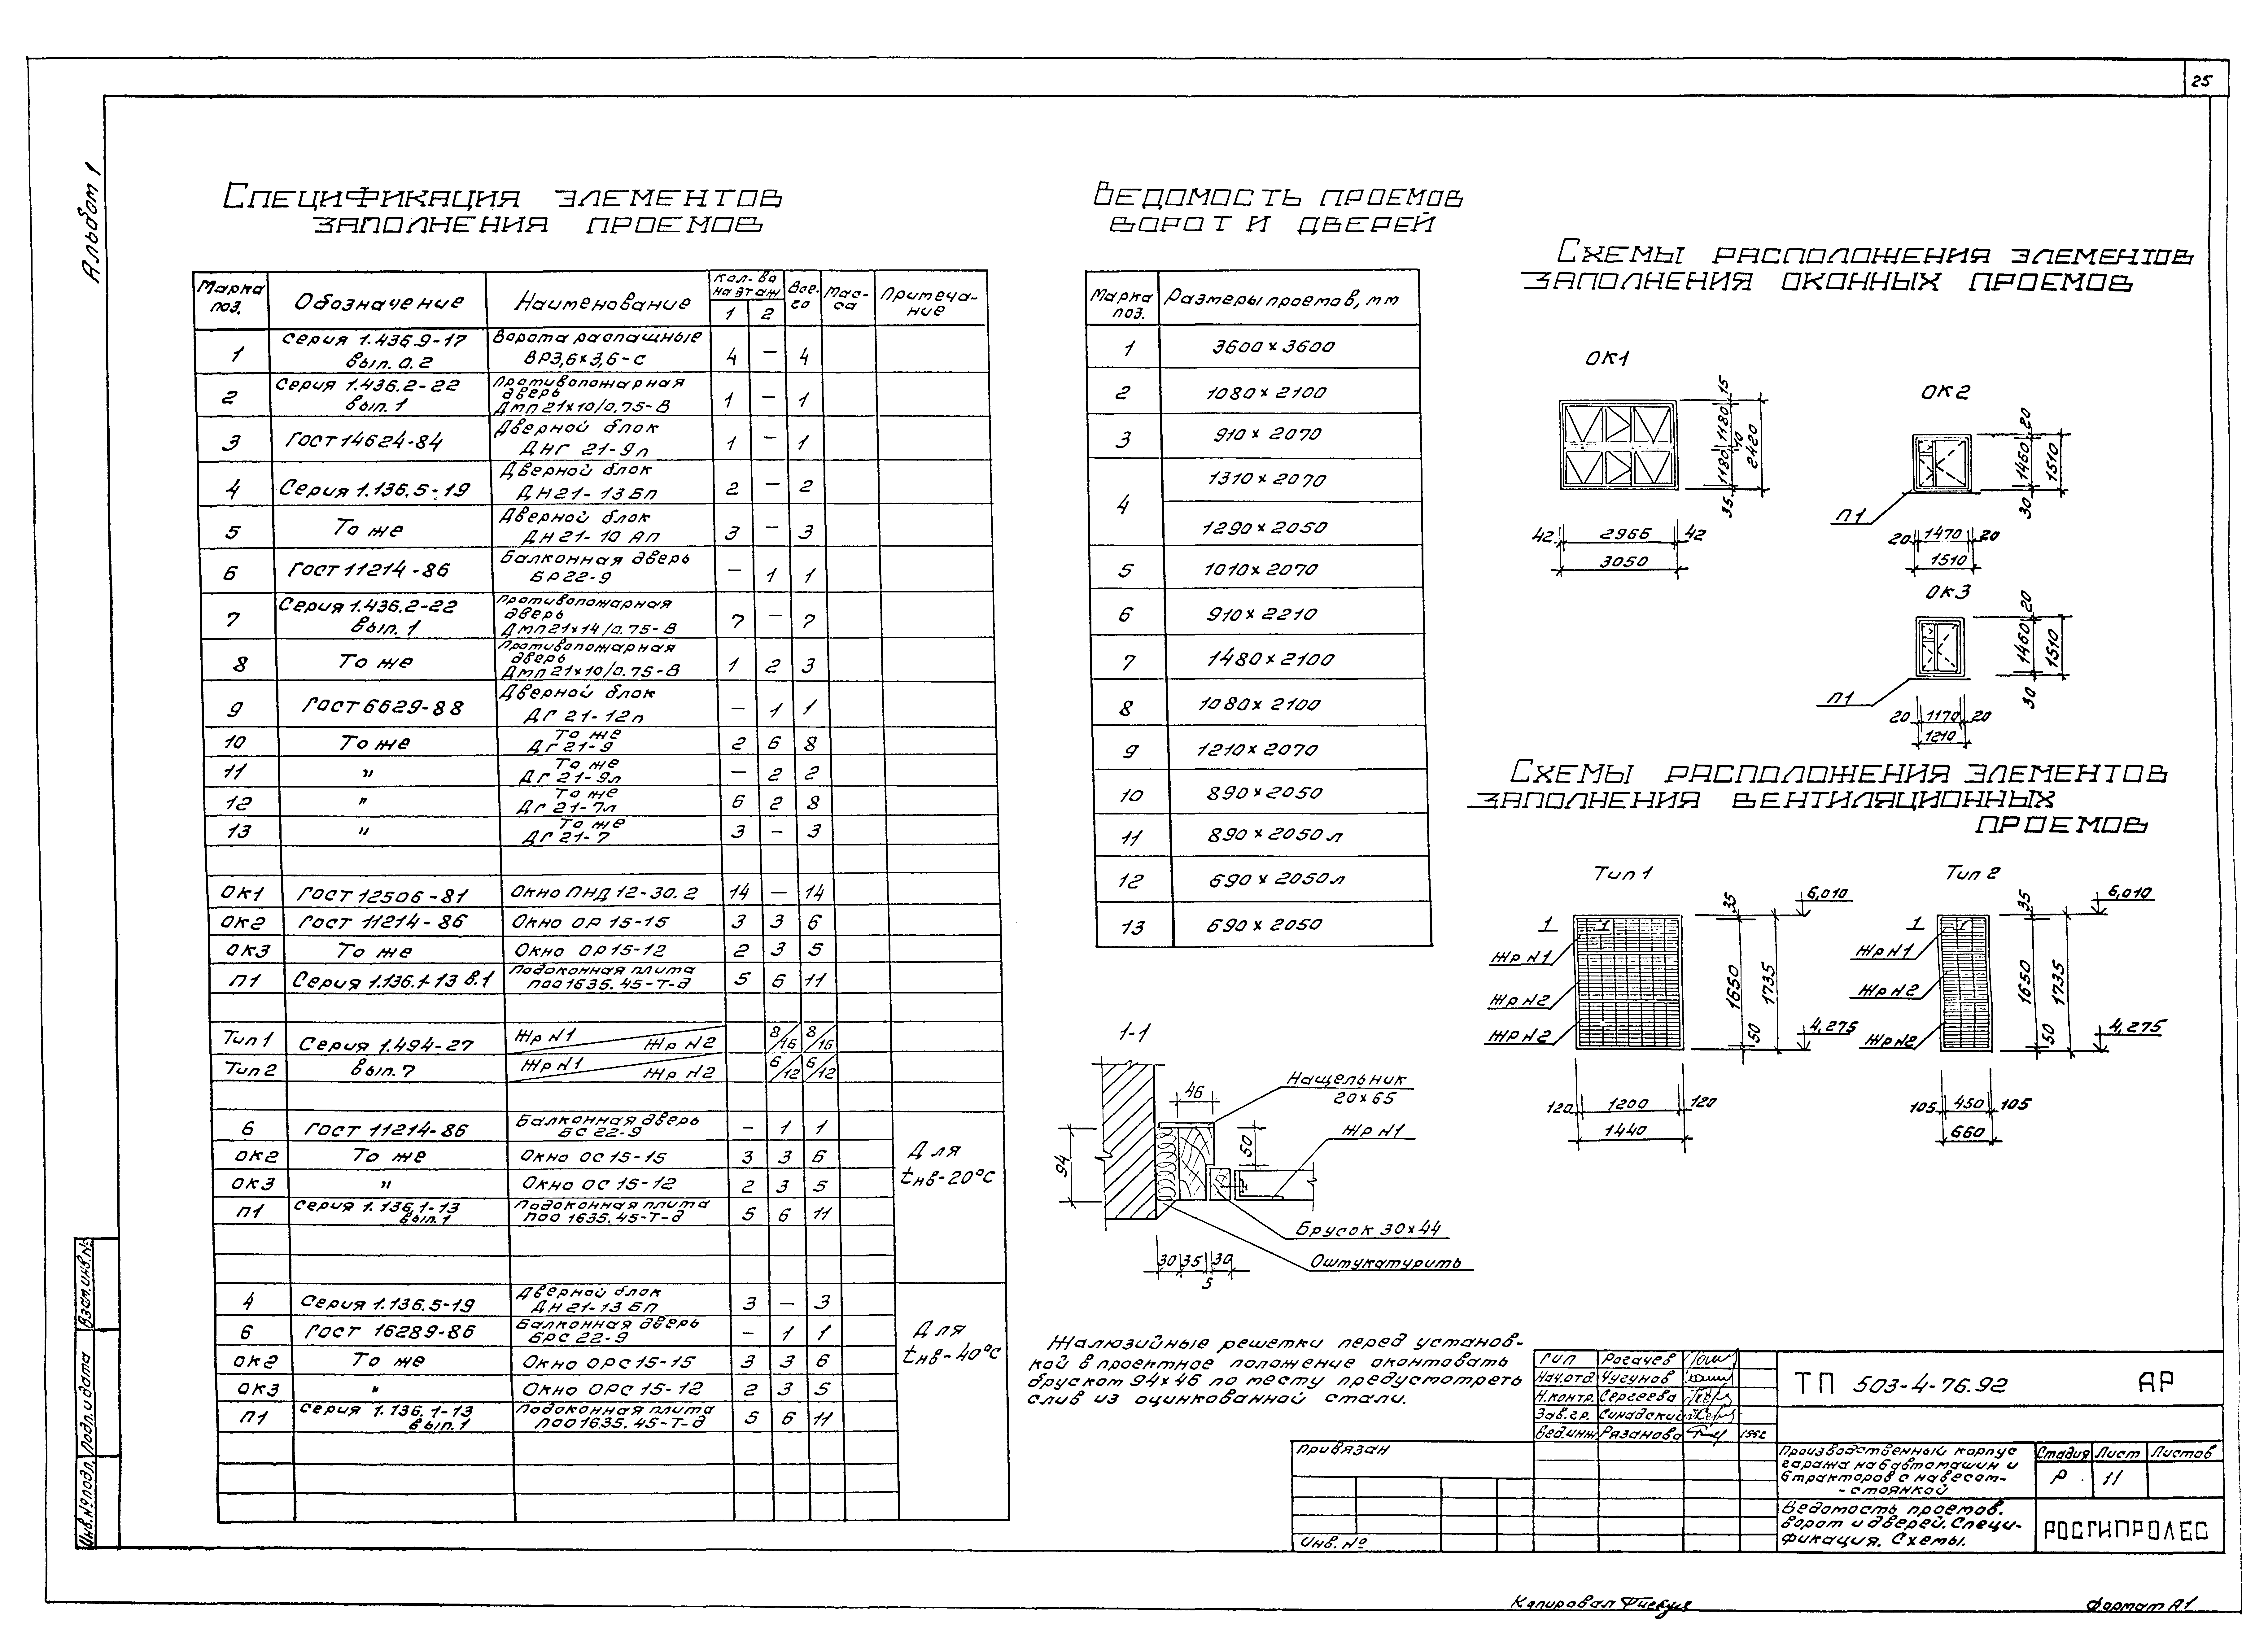 25
Альбом 1
Спецификация элементов
заполнения проемов
Марка поз. | Обозначение | Наименование | Кол-во на этаж 1 2 | Все-го | Мас-са | Примеча-ние
1 | Серия 1.436.9-17 вып. 0.2 | Ворота распашные ВР3,6×3,6-С | 4 | — | 4
2 | Серия 1.436.2-22 вып. 1 | Противопожарная дверь Дмп 21×10/0.75-В | 1 | — | 1
3 | ГОСТ 14624-84 | Дверной блок ДНГ 21-9л | 1 | — | 1
4 | Серия 1.136.5-19 | Дверной блок ДН21-13Бп | 2 | — | 2
5 | То же | Дверной блок ДН21-10 Ап | 3 | — | 3
6 | ГОСТ 11214-86 | Балконная дверь БР22-9 | — | 1 | 1
7 | Серия 1.436.2-22 вып. 1 | Противопожарная дверь Дмп 21×14/0.75-В | 7 | — | 7
8 | То же | Противопожарная дверь Дмп 21×10/0.75-В | 1 | 2 | 3
9 | ГОСТ 6629-88 | Дверной блок ДГ 21-12п | — | 1 | 1
10 | То же | То же ДГ21-9 | 2 | 6 | 8
11 | " | То же ДГ21-9л | — | 2 | 2
12 | " | То же ДГ21-7л | 6 | 2 | 8
13 | " | То же ДГ21-7 | 3 | — | 3
ОК1 | ГОСТ 12506-81 | Окно ПНД 12-30.2 | 14 | — | 14
ОК2 | ГОСТ 11214-86 | Окно ОР 15-15 | 3 | 3 | 6
ОК3 | То же | Окно ОР15-12 | 2 | 3 | 5
П1 | Серия 1.136.1-13 В.1 | Подоконная плита поо 1635.45-Т-д | 5 | 6 | 11
Тип 1 | Серия 1.494-27 | ЖР N1 ЖР N2 | 8/16 | 8/16
Тип 2 | вып. 7 | ЖР N1 ЖР N2 | 6/12 | 6/12
6 | ГОСТ 11214-86 | Балконная дверь БС 22-9 | — | 1 | 1
ОК2 | То же | Окно ОС 15-15 | 3 | 3 | 6
ОК3 | " | Окно ОС 15-12 | 2 | 3 | 5
П1 | Серия 1.136.1-13 вып. 1 | Подоконная плита поо 1635.45-Т-д | 5 | 6 | 11
Для
tнв-20°С
4 | Серия 1.136.5-19 | Дверной блок ДН21-13Бп | 3 | — | 3
6 | ГОСТ 16289-86 | Балконная дверь БРС 22-9 | — | 1 | 1
ОК2 | То же | Окно ОРС 15-15 | 3 | 3 | 6
ОК3 | " | Окно ОРС 15-12 | 2 | 3 | 5
П1 | Серия 1.136.1-13 вып. 1 | Подоконная плита поо 1635.45-Т-д | 5 | 6 | 11
Для
tнв-40°С
Ведомость проемов
ворот и дверей
Марка поз. | Размеры проемов, мм
1 | 3600×3600
2 | 1080×2100
3 | 910×2070
4 | 1310×2070
1290×2050
5 | 1010×2070
6 | 910×2210
7 | 1480×2100
8 | 1080×2100
9 | 1210×2070
10 | 890×2050
11 | 890×2050л
12 | 690×2050л
13 | 690×2050
Схемы расположения элементов
заполнения оконных проемов
ОК1
15
1180
10
1180
35
2420
42 2966 42
3050
ОК2
20
1460
30
1510
П1
20 1470 20
1510
ОК3
20
1460
30
1510
П1
20 1170 20
1210
Схемы расположения элементов
заполнения вентиляционных
проемов
Тип 1
1 1
ЖР N1
ЖР N2
ЖР N2
35
1650
50
1735
6,010
4,275
120 1200 120
1440
Тип 2
1 1
ЖР N1
ЖР N2
ЖР N2
35
1650
50
1735
6,010
4,275
105 450 105
660
1-1
46
94
50
Нащельник
20×65
ЖР N1
Брусок 30×44
Оштукатурить
30 35 30
5
Жалюзийные решетки перед установ-
кой в проектное положение оконтовать
бруском 94×46 по месту предусмотреть
слив из оцинкованной стали.
ГИП Рогачев
Нач.отд. Чугунов
Н.контр. Сергеева
Зав.гр. Синадский
Вед.инж Рязанова 1992
ТП 503-4-76.92 АР
Привязан
Инв. №
Производственный корпус
гаража на 6 автомашин и
6 тракторов с навесом-
-стоянкой
Стадия Лист Листов
Р 11
Ведомость проемов.
ворот и дверей. Специ-
фикация. Схемы.
РОСГИПРОЛЕС
Взам. инв.№
Подп. и дата
Инв.№ подл.
Копировал
Формат А1